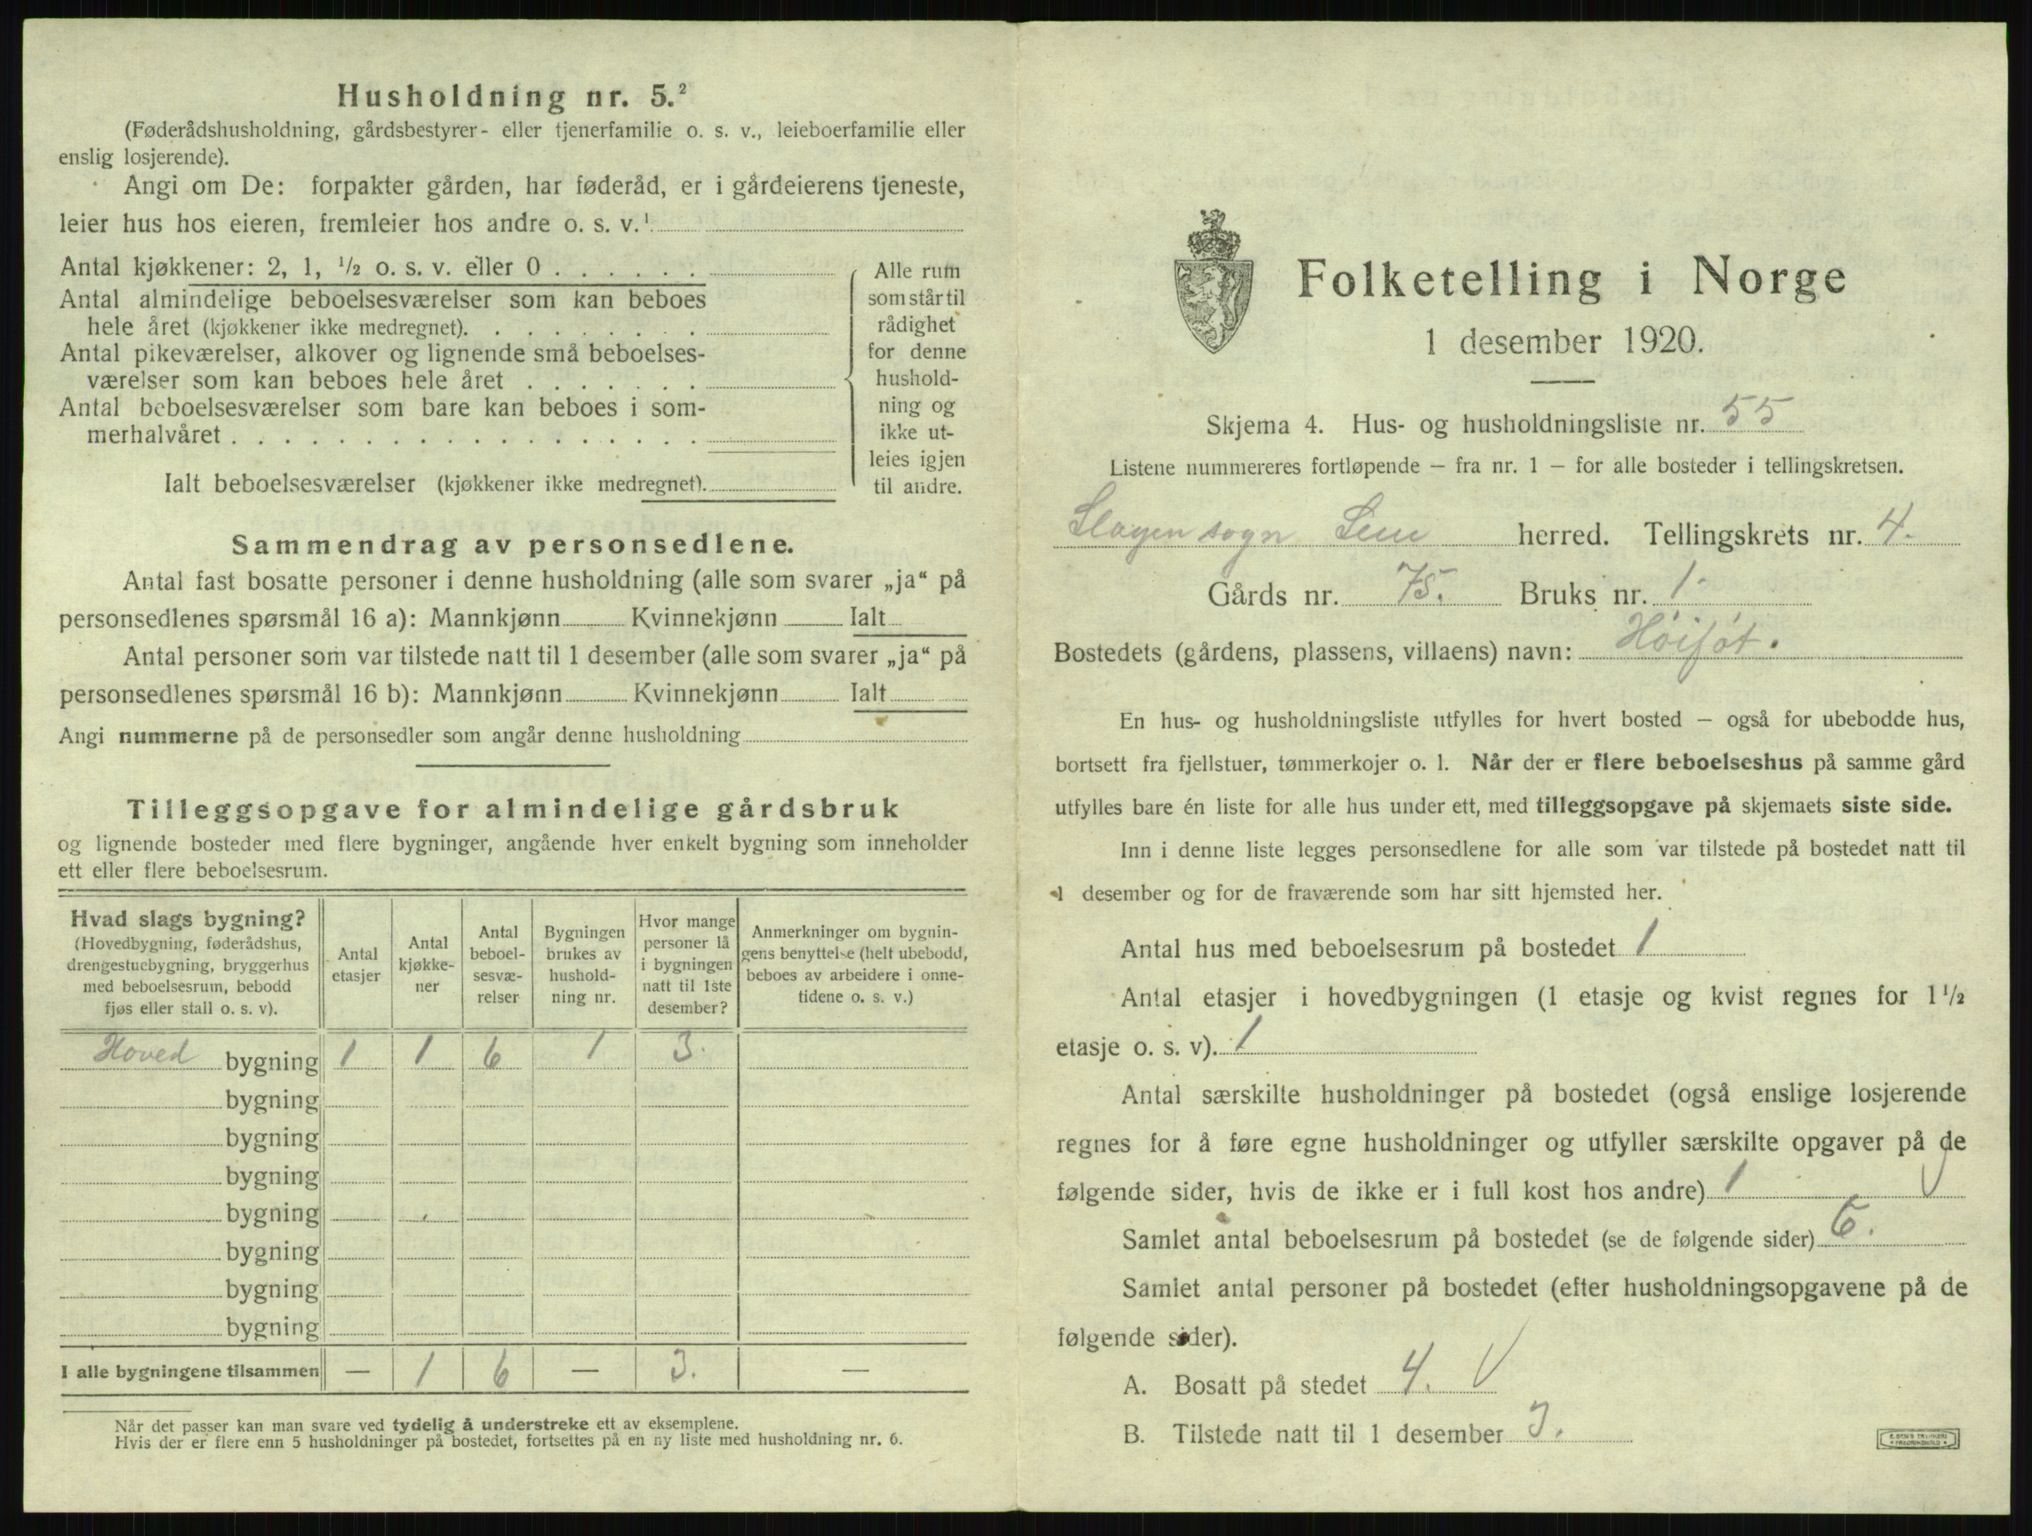 Husholdning nr. 5.²
(Føderådshusholdning, gårdsbestyrer- eller tjenerfamilie o. s. v., leieboerfamilie eller
enslig losjerende).
Angi om De: forpakter gården, har føderåd, er i gårdeierens tjeneste,
leier hus hos eieren, fremleier hos andre o. s. v.¹
Antal kjøkkener: 2, 1, ½ o. s. v. eller 0 . . . . . .
Antal almindelige beboelsesværelser som kan beboes
hele året (kjøkkener ikke medregnet). . . . . . . . .
Antal pikeværelser, alkover og lignende små beboelses-
værelser som kan beboes hele året . . . . . . .
Antal beboelsesværelser som bare kan beboes i som-
merhalvåret . . . . . . . . . . . . . . . . . .
Ialt beboelsesværelser (kjøkkener ikke medregnet).
Alle rum
som står til
rådighet
for denne
hushold-
ning og
ikke ut-
leies igjen
til andre.
Sammendrag av personsedlene.
Antal fast bosatte personer i denne husholdning (alle som svarer „ja“ på
personsedlenes spørsmål 16 a): Mannkjønn Kvinnekjønn Ialt
Antal personer som var tilstede natt til 1 desember (alle som svarer „ja“ på
personsedlenes spørsmål 16 b): Mannkjønn Kvinnekjønn Ialt
Angi nummerne på de personsedler som angår denne husholdning
Tilleggsopgave for almindelige gårdsbruk
og lignende bosteder med flere bygninger, angående hver enkelt bygning som inneholder
ett eller flere beboelsesrum.
Hvad slags bygning?
(Hovedbygning, føderådshus,
drengestuebygning, bryggerhus
med beboelsesrum, bebodd
fjøs eller stall o. s. v).
Antal
etasjer
Antal
kjøkke-
ner
Antal
beboel-
sesvæ-
relser
Bygningen
brukes av
hushold-
ning nr.
Hvor mange
personer lå
i bygningen
natt til 1ste
desember?
Anmerkninger om bygnin-
gens benyttelse (helt ubebodd,
beboes av arbeidere i onne-
tidene o. s. v.)
Hoved bygning 1 1 6 1 3.
bygning
bygning
bygning
bygning
bygning
bygning
bygning
I alle bygningene tilsammen — 1 6 — 3. —
Når det passer kan man svare ved tydelig å understreke ett av eksemplene.
Hvis der er flere enn 5 husholdninger på bostedet, fortsettes på en ny liste med husholdning nr. 6.
Folketelling i Norge
1 desember 1920.
Skjema 4. Hus- og husholdningsliste nr. 55
Listene nummereres fortløpende — fra nr. 1 — for alle bosteder i tellingskretsen.
Slagen sogn Sem herred. Tellingskrets nr. 4.
Gårds nr. 75. Bruks nr. 1.
Bostedets (gårdens, plassens, villaens) navn: Høiføt.
En hus- og husholdningsliste utfylles for hvert bosted — også for ubebodde hus,
bortsett fra fjellstuer, tømmerkojer o. l. Når der er flere beboelseshus på samme gård
utfylles bare én liste for alle hus under ett, med tilleggsopgave på skjemaets siste side.
Inn i denne liste legges personsedlene for alle som var tilstede på bostedet natt til
1 desember og for de fraværende som har sitt hjemsted her.
Antal hus med beboelsesrum på bostedet 1
Antal etasjer i hovedbygningen (1 etasje og kvist regnes for 1½
etasje o. s. v). 1
Antal særskilte husholdninger på bostedet (også enslige losjerende
regnes for å føre egne husholdninger og utfyller særskilte opgaver på de
følgende sider, hvis de ikke er i full kost hos andre) 1 V
Samlet antal beboelsesrum på bostedet (se de følgende sider) 6.
Samlet antal personer på bostedet (efter husholdningsopgavene på de
følgende sider).
A. Bosatt på stedet 4. V
B. Tilstede natt til 1 desember 3.